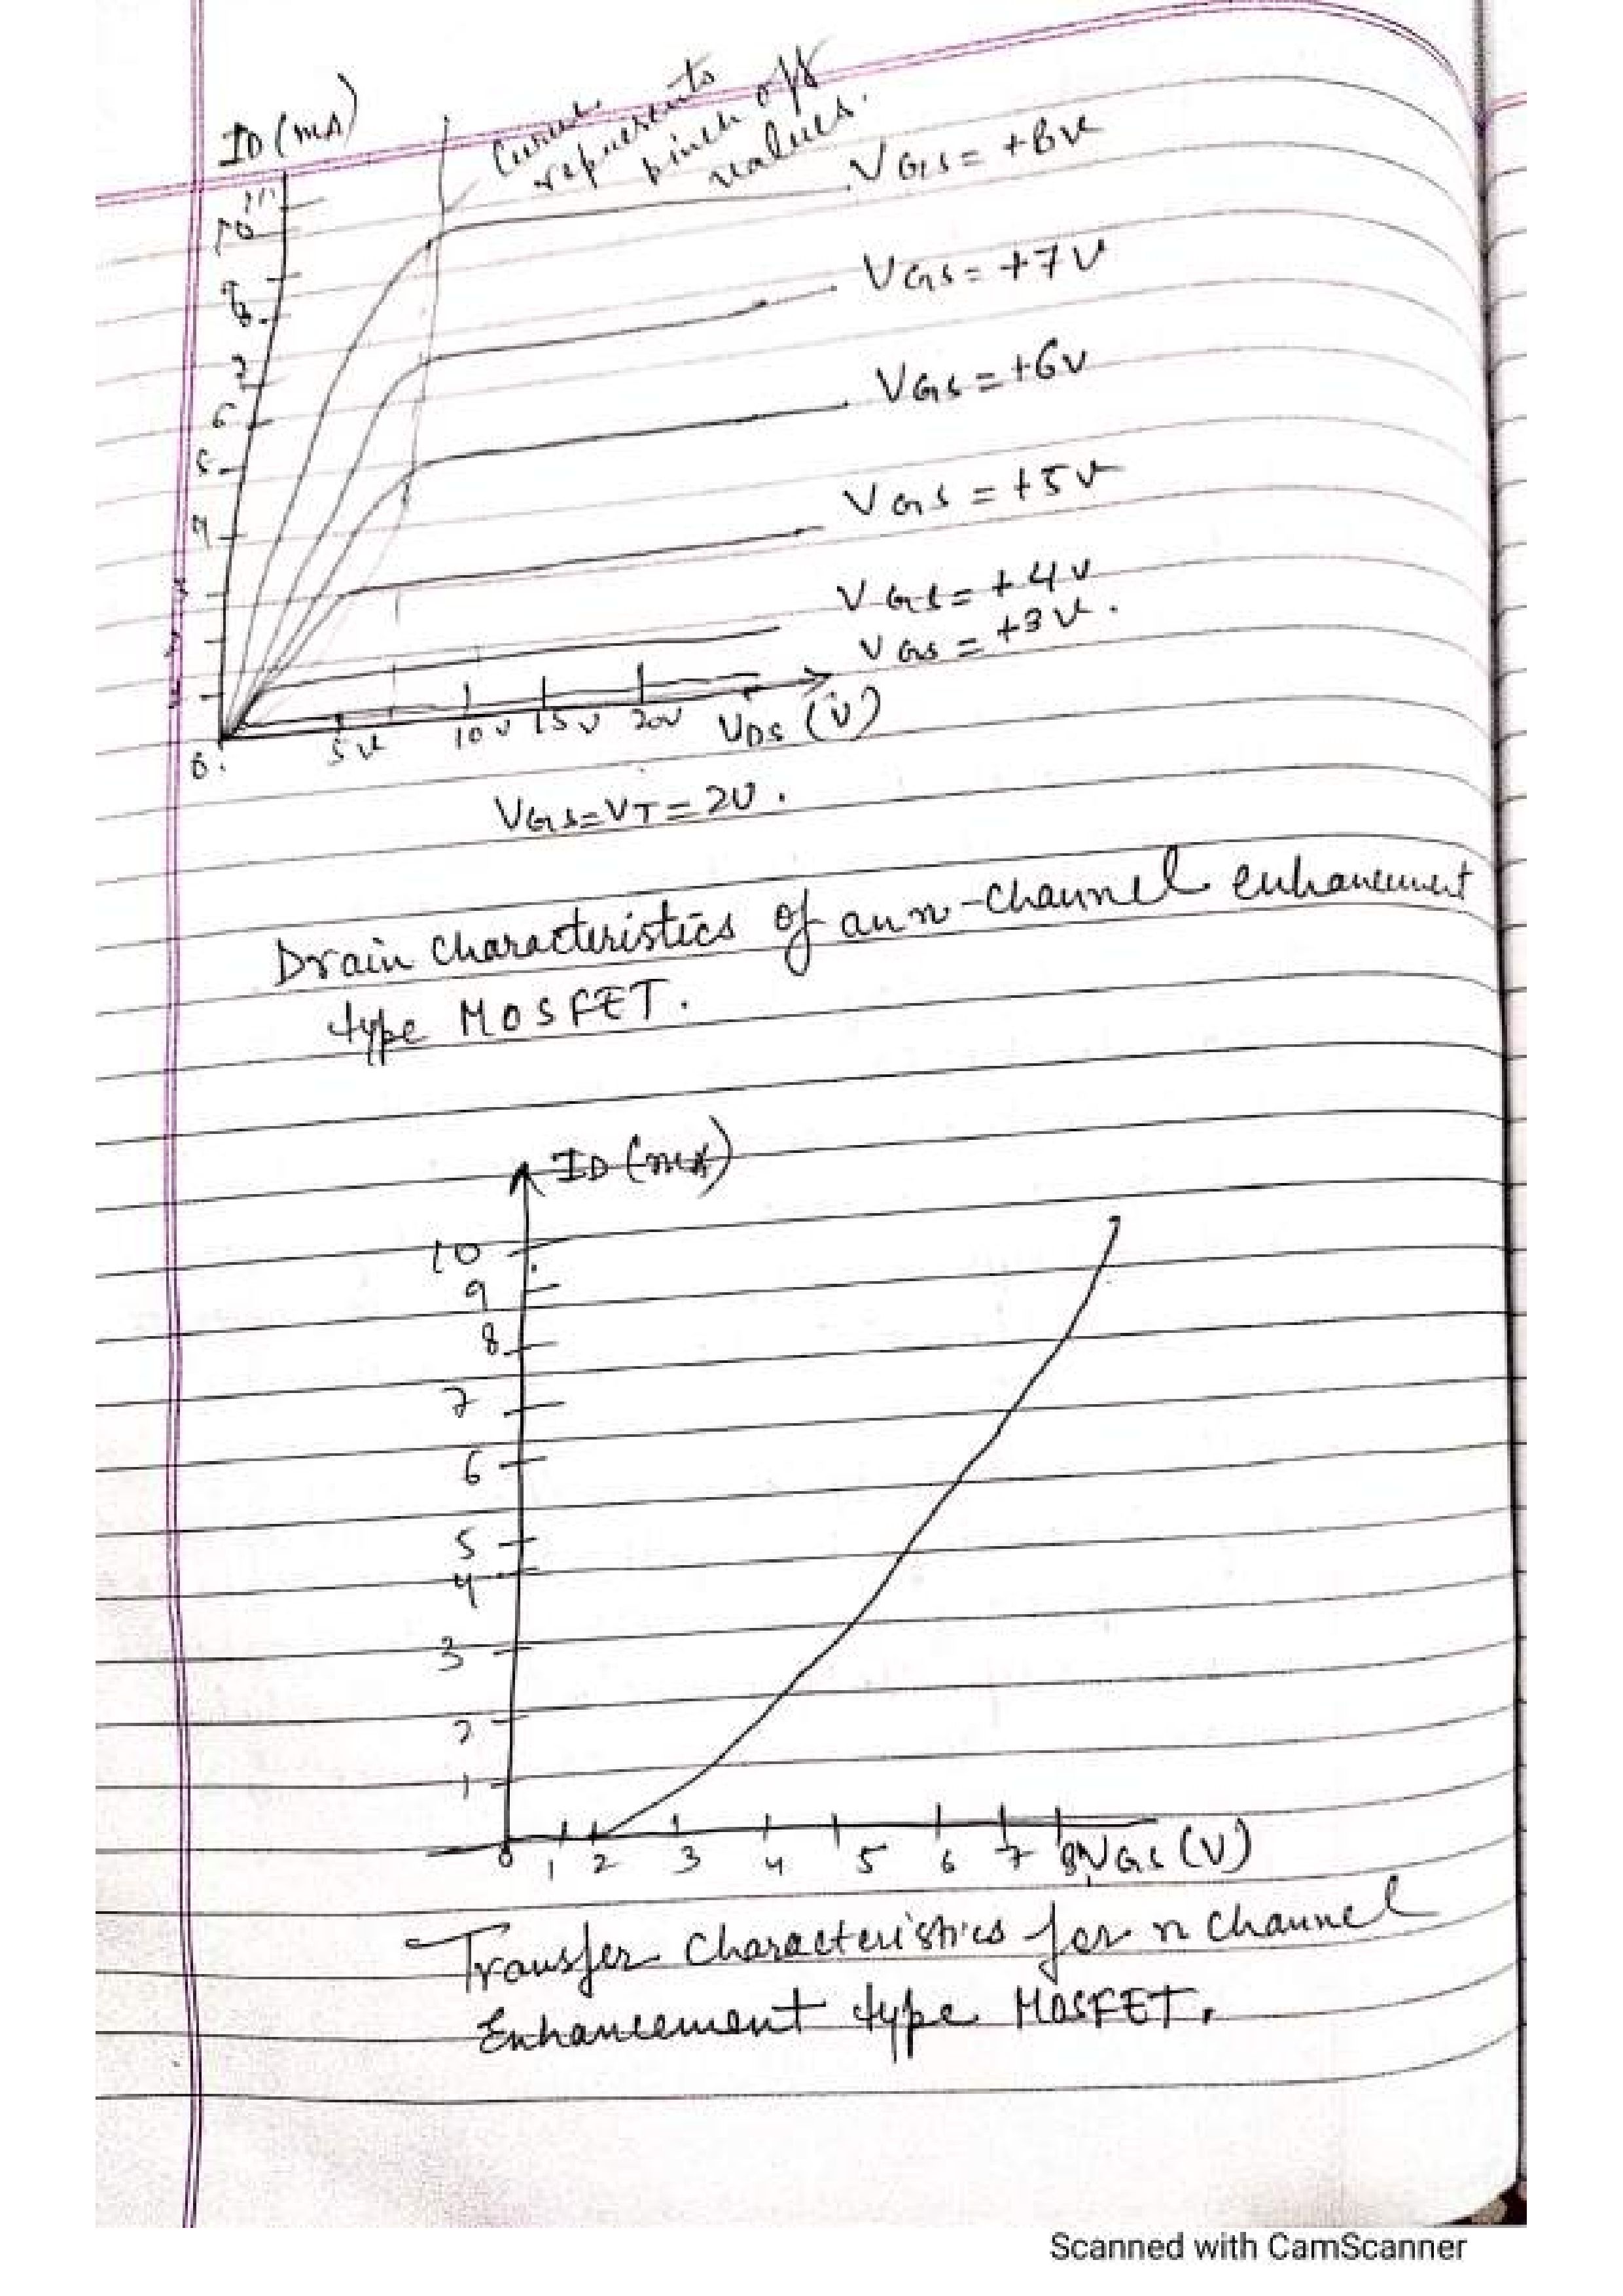 ID (mA)
Curve
represents
pinch off
values.
VGS = +8V
11
10
9
8
VGS = +7V
7
6
VGS = +6V
5
VGS = +5V
4
VGS = +4V
VGS = +3V.
0.
5V 10V 15V 20V VDS (V)
VGS=VT=2V.
Drain characteristics of an n-channel enhancement
type MOSFET.
ID (mA)
10
9
8
7
6
5
4
3
2
1
0 1 2 3 4 5 6 7 8 VGS (V)
Transfer characteristics for n channel
Enhancement type MOSFET.
Scanned with CamScanner